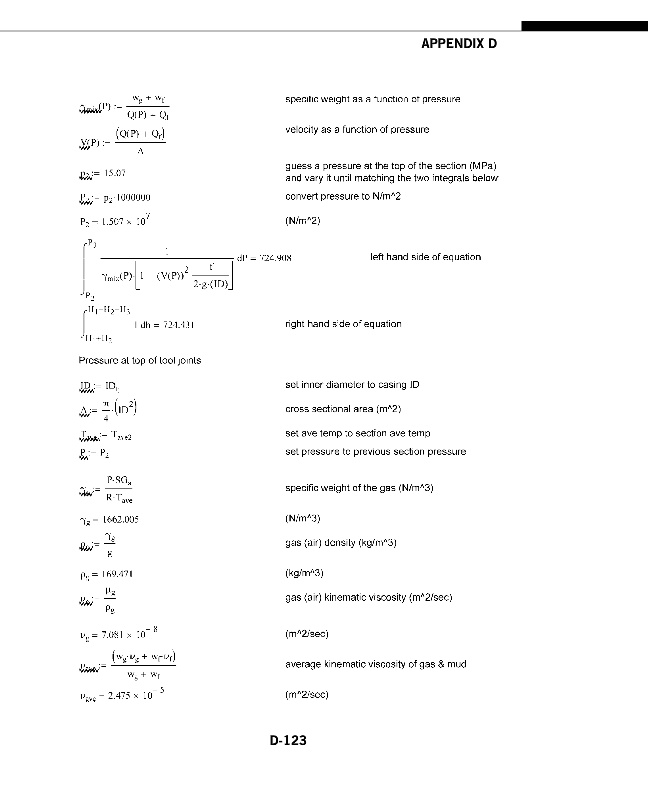 APPENDIX D
γmix(P) := (wg + wf) / (Q(P) + Qf) specific weight as a function of pressure
V(P) := (Q(P) + Qf) / A velocity as a function of pressure
guess a pressure at the top of the section (MPa)
p2 := 15.07 and vary it until matching the two integrals below
P2 := p2·1000000 convert pressure to N/m^2
P2 = 1.507 × 10^7 (N/m^2)
∫_P2^P3 1 / (γmix(P)·[1 − (V(P))^2 f / (2·g·(ID))]) dP = 724.908 left hand side of equation
∫_H1+H2^H1+H2+H3 1 dh = 724.431 right hand side of equation
Pressure at top of tool joints
ID := IDc set inner diameter to casing ID
A := π/4·(ID^2) cross sectional area (m^2)
Tave := Tave2 set ave temp to section ave temp
P := P2 set pressure to previous section pressure
γg := P·SGa / (R·Tave) specific weight of the gas (N/m^3)
γg = 1662.005 (N/m^3)
ρg := γg / g gas (air) density (kg/m^3)
ρg = 169.471 (kg/m^3)
υg := μg / ρg gas (air) kinematic viscosity (m^2/sec)
υg = 7.081 × 10^−8 (m^2/sec)
υave := (wg·υg + wf·υf) / (wg + wf) average kinematic viscosity of gas & mud
υave = 2.475 × 10^−5 (m^2/sec)
D-123